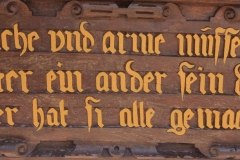 che vnd arme müsse
er ein ander sein d
er hat si alle gemac